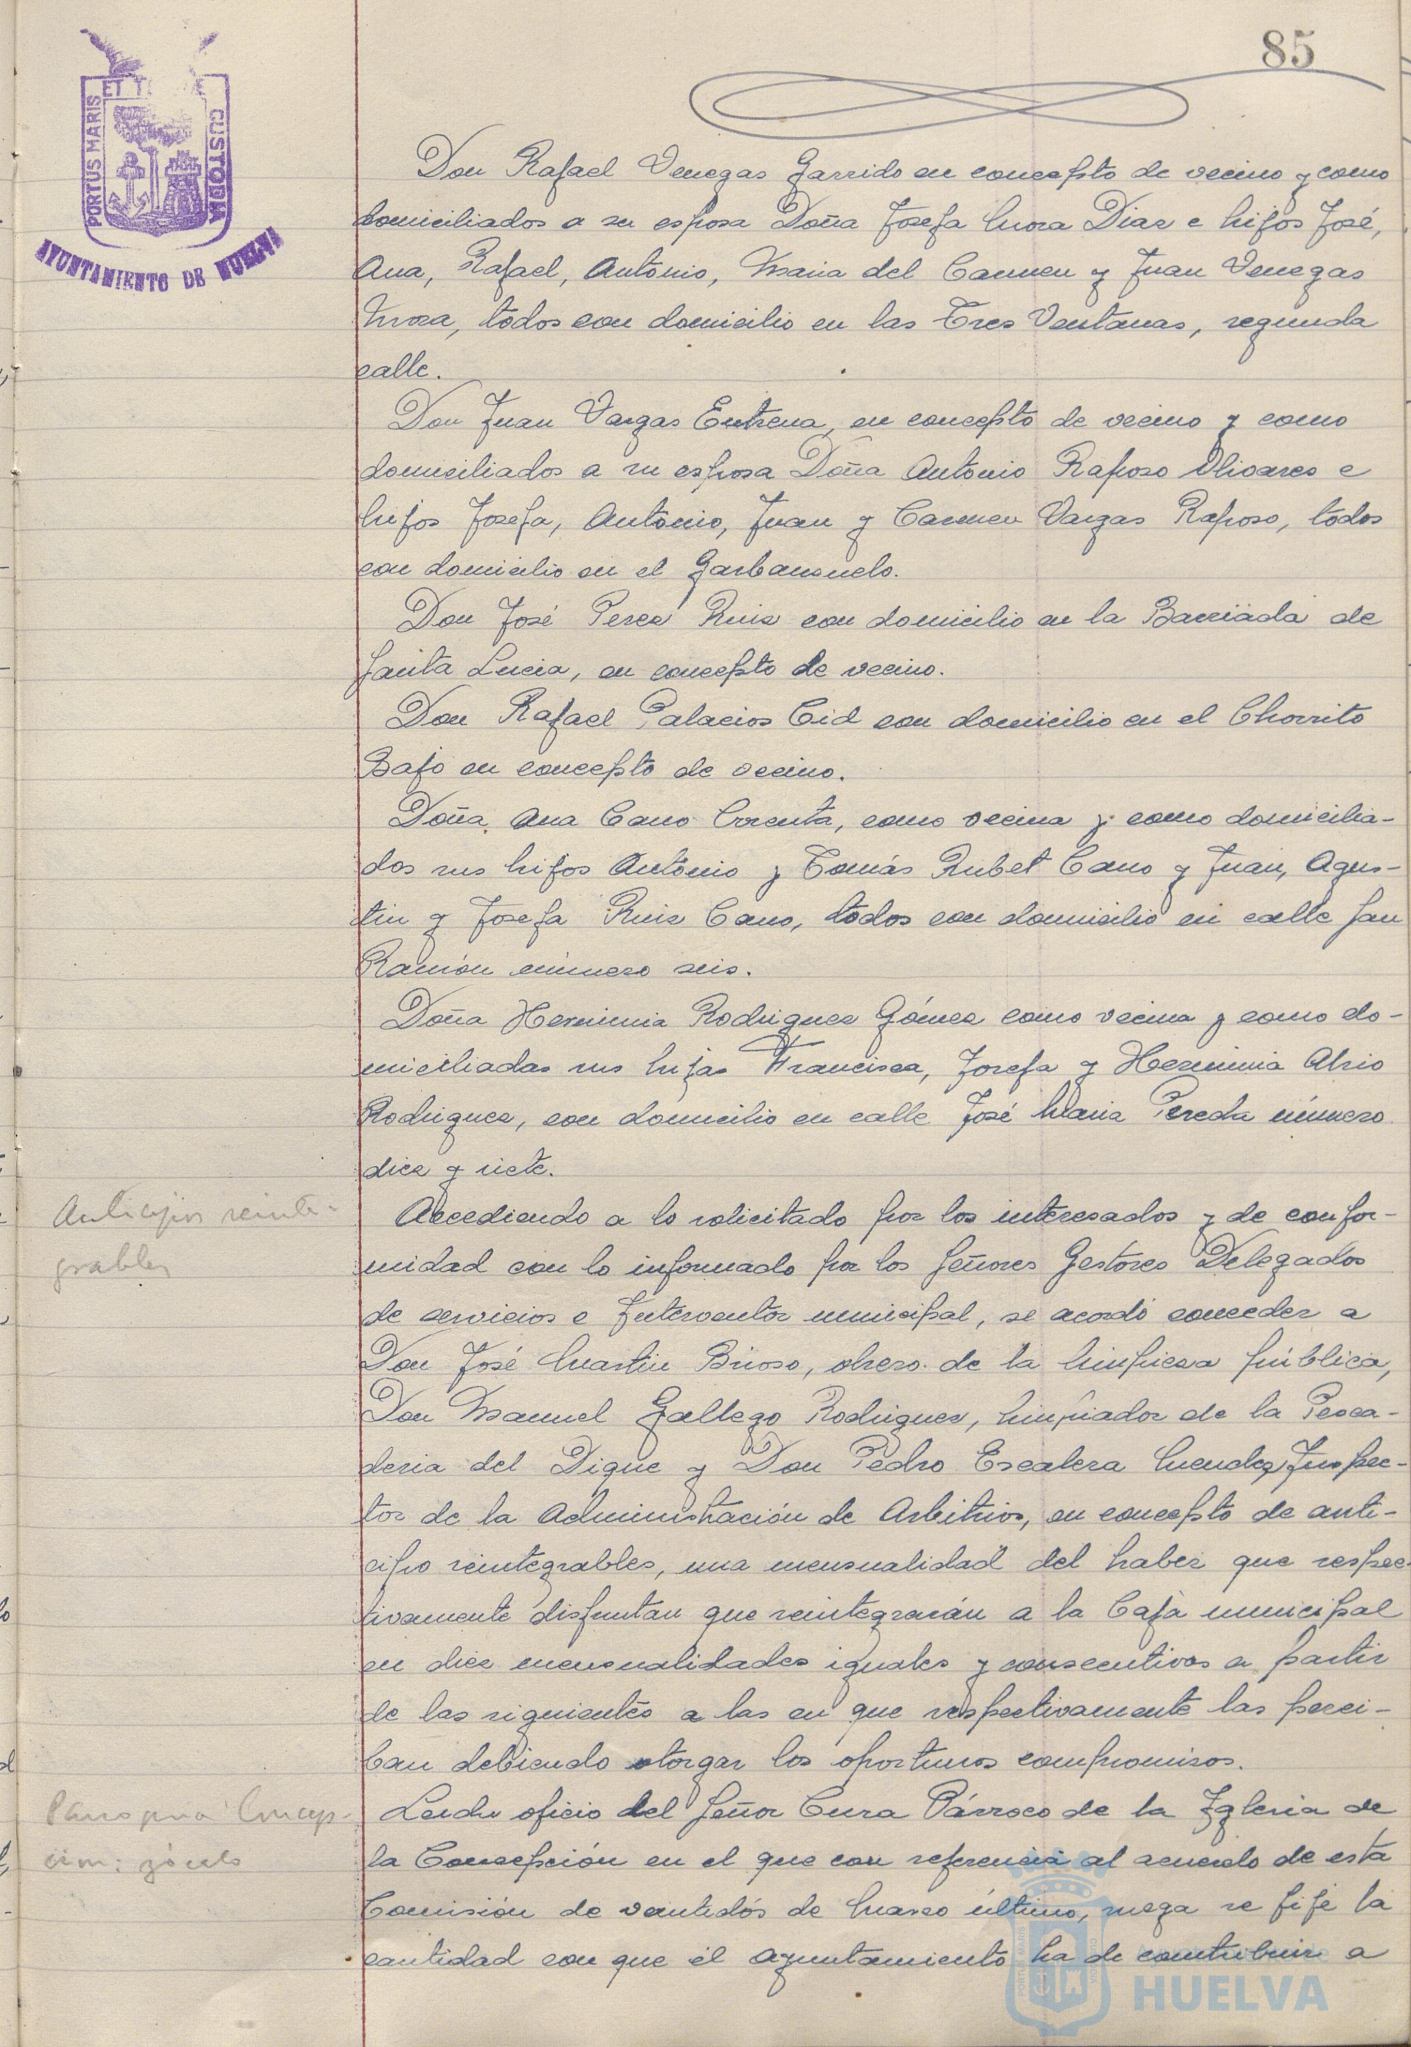 85
PORTUS MARIS ET T CUSTODIA
AYUNTAMIENTO DE HUELVA
Don Rafael Venegas Garrido en concepto de vecino y como
domiciliados a su esposa Doña Josefa Mora Diaz e hijos José,
Ana, Rafael, Antonio, Maria del Carmen y Juan Venegas
Mora, todos con domicilio en las Tres Ventanas, segunda
calle.
Don Juan Vargas Entrena, en concepto de vecino y como
domiciliados a su esposa Doña Antonio Raposo Olivares e
hijos Josefa, Antonio, Juan y Carmen Vargas Raposo, todos
con domicilio en el Garbansuelo.
Don José Perez Ruiz con domicilio en la Barriada de
Santa Lucia, en concepto de vecino.
Don Rafael Palacios Cid con domicilio en el Chorrito
Bajo en concepto de vecino.
Doña Ana Cano Orenta, como vecina y como domicilia-
dos sus hijos Antonio y Tomás Rubet Cano y Juan, Agus-
tin y Josefa Ruiz Cano, todos con domicilio en calle San
Ramón número seis.
Doña Herminia Rodriguez Gómez como vecina y como do-
miciliadas sus hijas Francisca, Josefa y Herminia
Rodriguez, con domicilio en calle José Maria Pereda número
diez y siete.
Anticipos reinte-
grables
Accediendo a lo solicitado por los interesados y de confor-
midad con lo informado por los Señores Gestores Delegados
de servicios e Interventor municipal, se acordó conceder a
Don José Martin Brioso, obrero de la limpieza pública,
Don Manuel Gallego Rodriguez, limpiador de la Pesca-
deria del Dique y Don Pedro Escalera Mendez, Inspec-
tor de la Administración de Arbitrios, en concepto de anti-
cipo reintegrables, una mensualidad del haber que respec-
tivamente disfrutan que reintegrarán a la Caja municipal
en diez mensualidades iguales y consecutivas a partir
de las siguientes a las en que respectivamente las perci-
ban debiendo otorgar los oportunos compromisos.
Parroquia Concep-
cion: zócalo
Leido oficio del Señor Cura Párroco de la Iglesia de
la Concepción en el que con referencia al acuerdo de esta
Comisión de veintidós de Marzo último, ruega se fije la
cantidad con que el Ayuntamiento ha de contribuir a
HUELVA